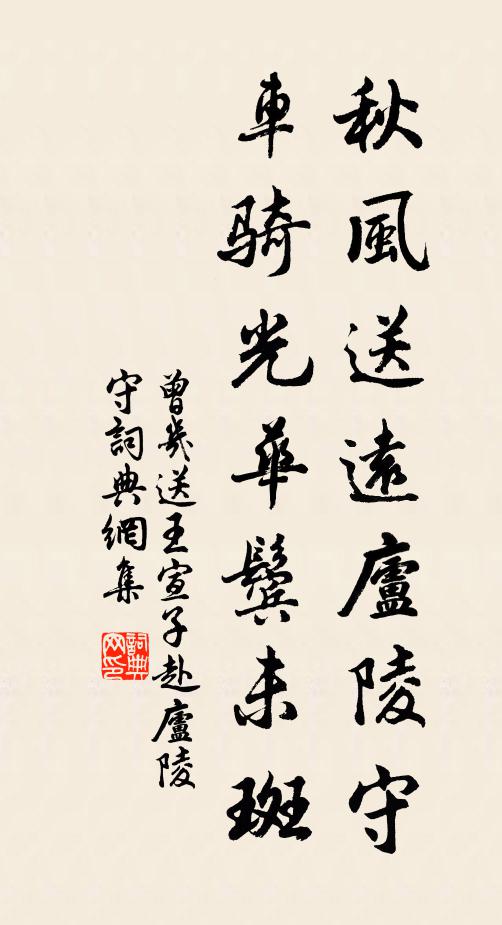 秋風送遠廬陵守
車騎光華鬢未斑
曾幾送王宣子赴廬陵
守詞典網集
詞典網印